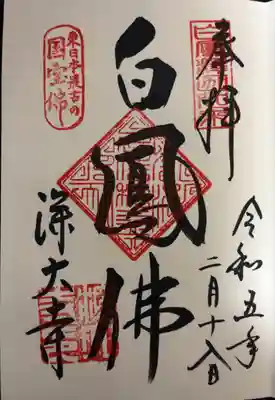 奉拝
令和五年
二月十八日
白鳳佛
深大寺
東日本最古の
国宝佛